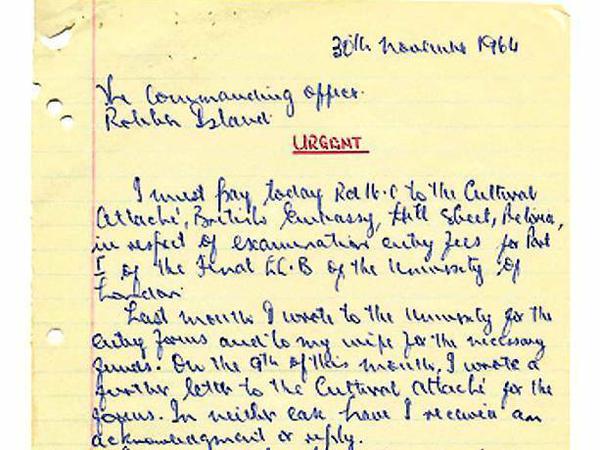 30th November 1964
The Commanding Officer.
Robben Island.
URGENT
I must pay today Rd16.0 to the Cultural
Attaché, British Embassy, Hill Street, Pretoria,
in respect of examination entry fees for Part
I of the Final LL.B of the University of
London.
Last month I wrote to the University for the
entry forms and to my wife for the necessary
funds. On the 9th of this month, I wrote a
further letter to the Cultural Attaché for the
forms. In neither case have I received an
acknowledgment or reply.